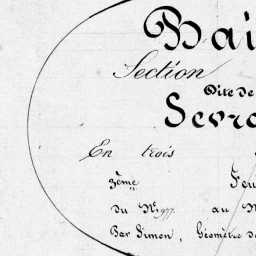 Bai
Section
Dite de
Sevr
En trois
3ème Feu
du Nº 977. au N
Par Simon, Géomètre d